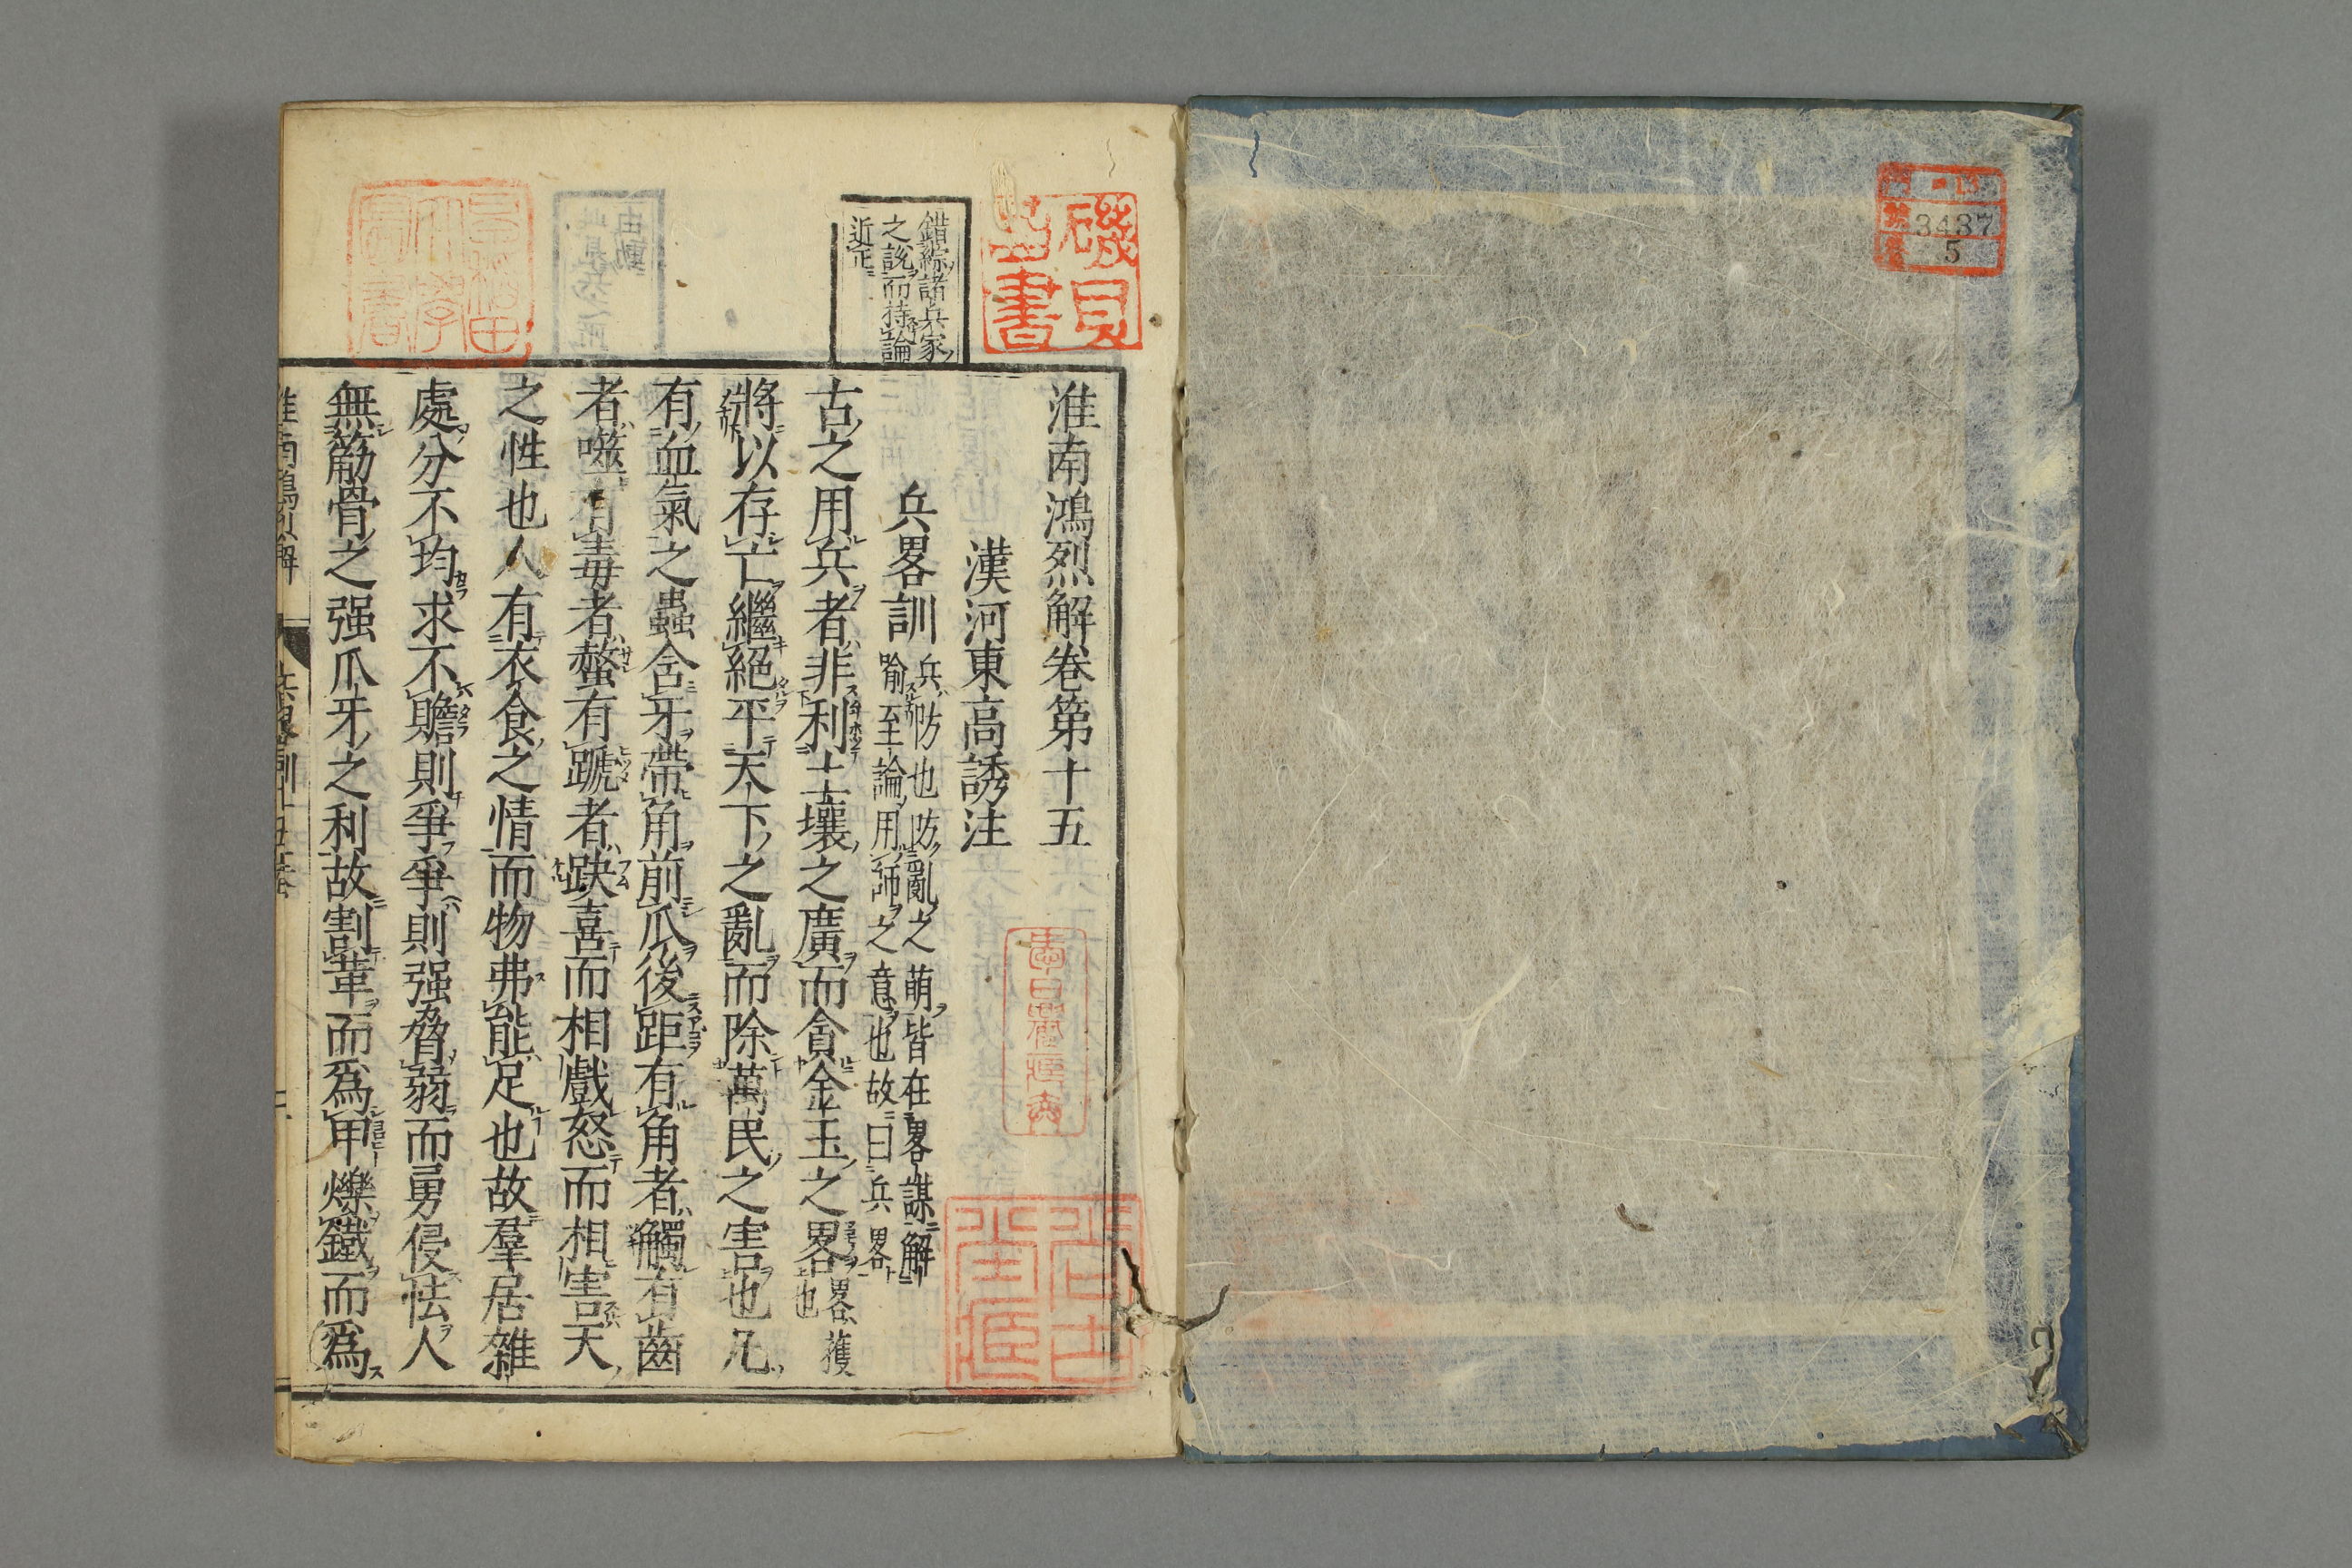 3437
5
磯貝
書
錯綜諸兵家
之說而持論
近正
淮南鴻烈解卷第十五
漢河東高誘注
兵畧訓
兵防也防亂之萌皆在畧謀解
喻至論用師之意也故曰兵畧
古之用兵者非利土壤之廣而貪金玉之畧
畧獲
也
將以存亡繼絕平天下之亂而除萬民之害也凡
有血氣之蟲含牙帶角前爪後距有角者觸有齒
者噬有毒者螫有蹏者趹喜而相戲怒而相害天
之性也人有衣食之情而物弗能足也故羣居雜
處分不均求不贍則爭爭則强脅弱而勇侵怯人
無筋骨之强爪牙之利故割革而爲甲爍鐵而爲